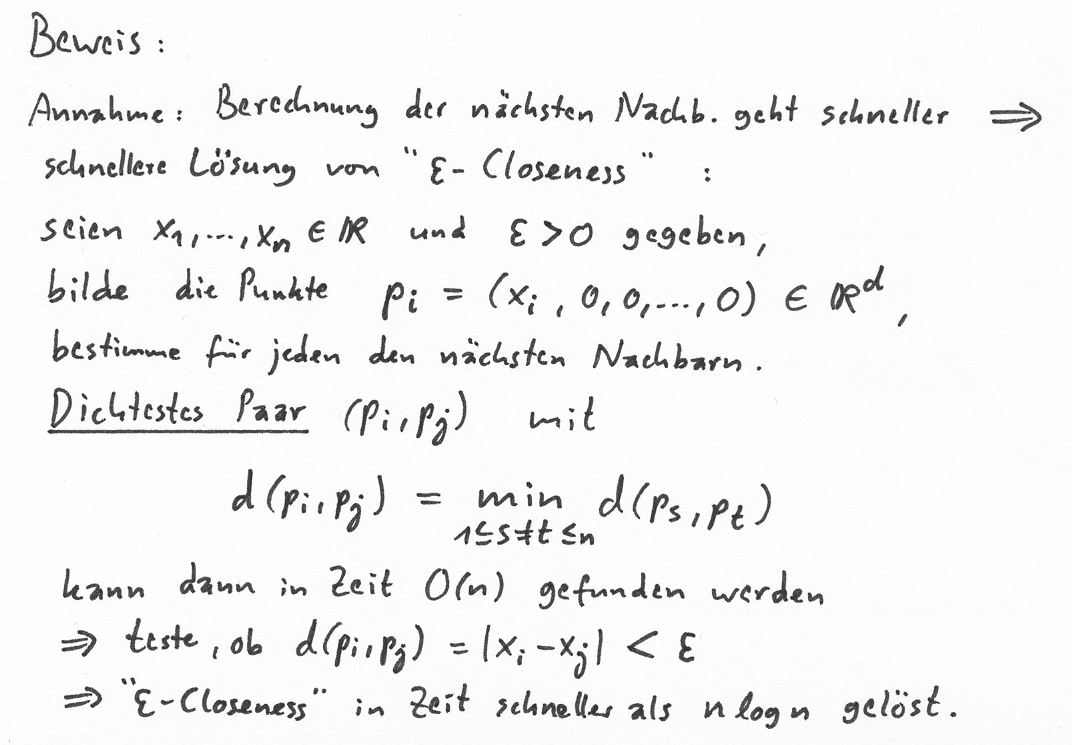 Beweis:
Annahme: Berechnung der nächsten Nachb. geht schneller ⟹
schnellere Lösung von "ε-Closeness" :
seien x₁,...,xₙ ∈ ℝ und ε > 0 gegeben,
bilde die Punkte pᵢ = (xᵢ, 0, 0,..., 0) ∈ ℝᵈ,
bestimme für jeden den nächsten Nachbarn.
Dichtestes Paar (pᵢ, pⱼ) mit
d(pᵢ, pⱼ) = min d(pₛ, pₜ)
1≤s≠t≤n
kann dann in Zeit O(n) gefunden werden
⇒ teste, ob d(pᵢ, pⱼ) = |xᵢ - xⱼ| < ε
⇒ "ε-Closeness" in Zeit schneller als n log n gelöst.